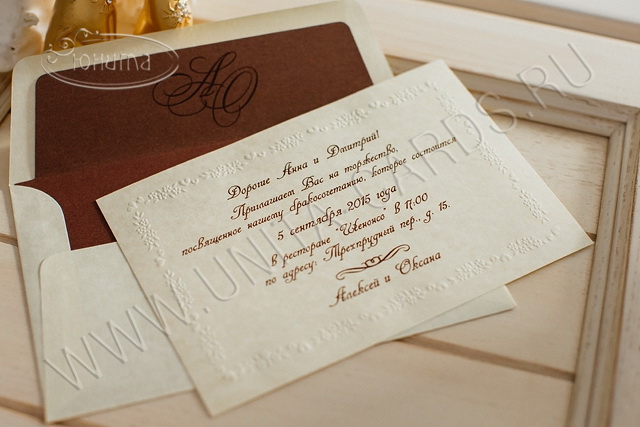 Юнита
АО
Дорогие Анна и Дмитрий!
Приглашаем Вас на торжество,
посвященное нашему бракосочетанию, которое состоится
5 сентября 2015 года
в ресторане "Шенонсо" в 17:00
по адресу: Трехпрудный пер., д. 15.
Алексей и Оксана
WWW.UNITA-CARDS.RU